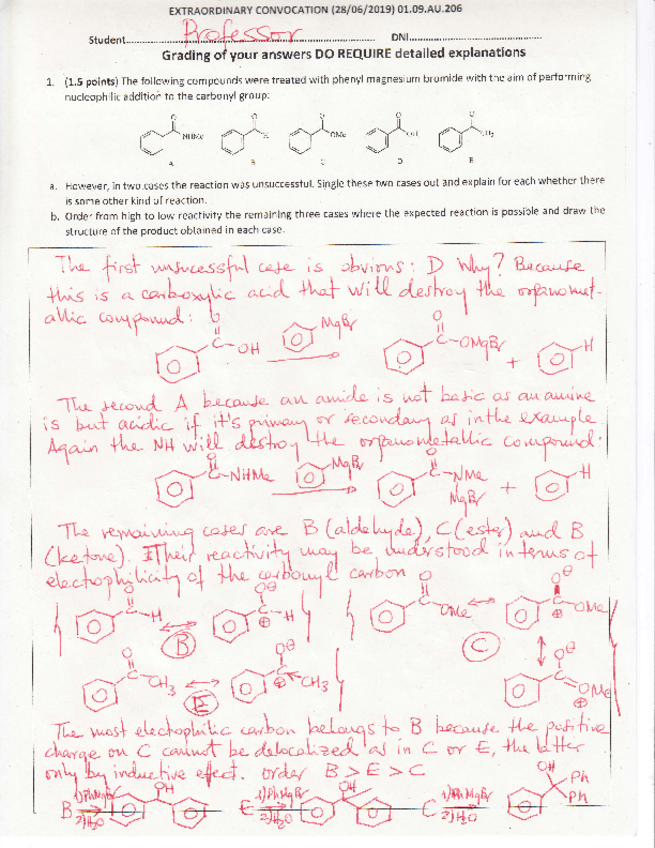 EXTRAORDINARY CONVOCATION (28/06/2019) 01.09.AU.206
Student Professor DNI
Grading of your answers DO REQUIRE detailed explanations
1. (1.5 points) The following compounds were treated with phenyl magnesium bromide with the aim of performing
nucleophilic addition to the carbonyl group:
O O O O O
NHMe H OMe OH CH3
A B C D E
a. However, in two cases the reaction was unsuccessful. Single these two cases out and explain for each whether there
is some other kind of reaction.
b. Order from high to low reactivity the remaining three cases where the expected reaction is possible and draw the
structure of the product obtained in each case.
The first unsucessful case is obvious: D Why? Because
this is a carboxylic acid that will destroy the organomet-
allic compound:
O C-OH MgBr O C-OMgBr + H
The second A because an amide is not basic as an amine
is but acidic if it's primary or secondary as in the example
Again the NH will destroy the organometallic compound.
O C-NHMe MgBr O C-NMe MgBr + H
The remaining cases are B (aldehyde), C (ester) and B
(ketone). Their reactivity may be understood in terms of
electrophilicity of the carbonyl carbon
O C-H O⊖ C-H ⊕ O C OMe O⊖ C-OMe ⊕
B C
O C-CH3 O⊖ C-CH3 ⊕ O⊖ C=OMe ⊕
E
The most electrophilic carbon belongs to B because the positive
charge on C cannot be delocalized as in C or E, the latter
only by inductive effect. order B > E > C
B 1) PhMgBr 2) H2O OH E 1) PhMgBr 2) H2O OH C 1) PhMgBr 2) H2O OH Ph Ph